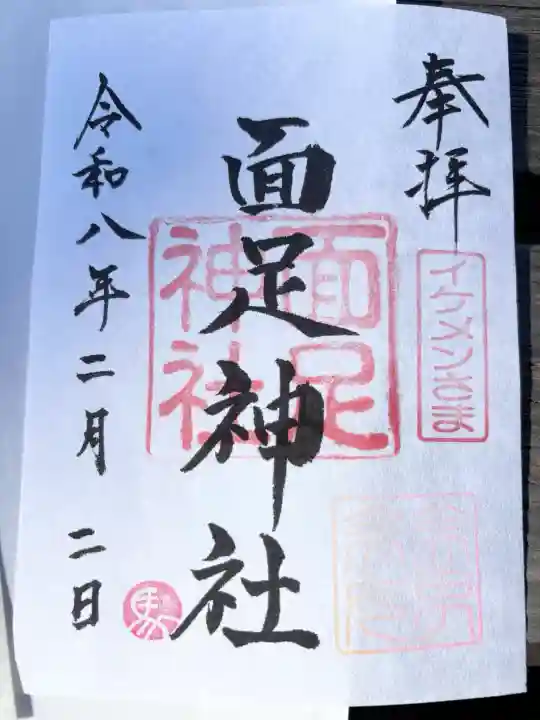 奉拝
イケメンさま
面足神社
面足神社
令和八年二月二日
馬